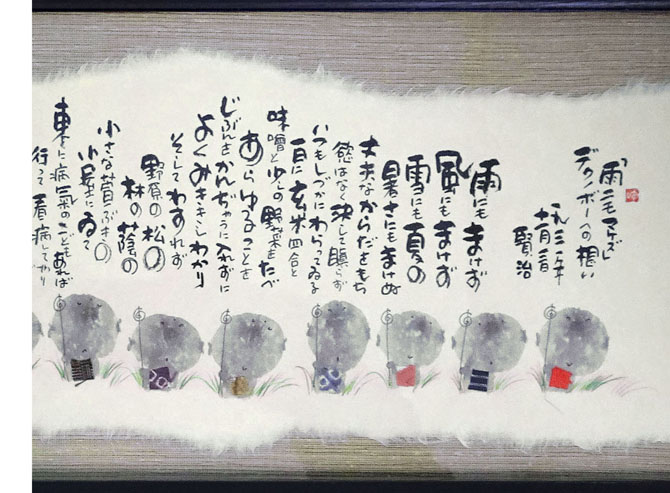 「雨ニモマケズ」
デクノボーへの想い
賢治
雨にもまけず
風にもまけず
雪にも夏の
暑さにもまけぬ
丈夫なからだをもち
慾はなく決して瞋らず
いつもしづかにわらってゐる
一日に玄米四合と
味噌と少しの野菜をたべ
あらゆることを
じぶんをかんぢゃうに入れずに
よくみききしわかり
そしてわすれず
野原の松の
林の蔭の
小さな萱ぶきの
小屋にゐて
東に病氣のこどもあれば
行って看病してやり